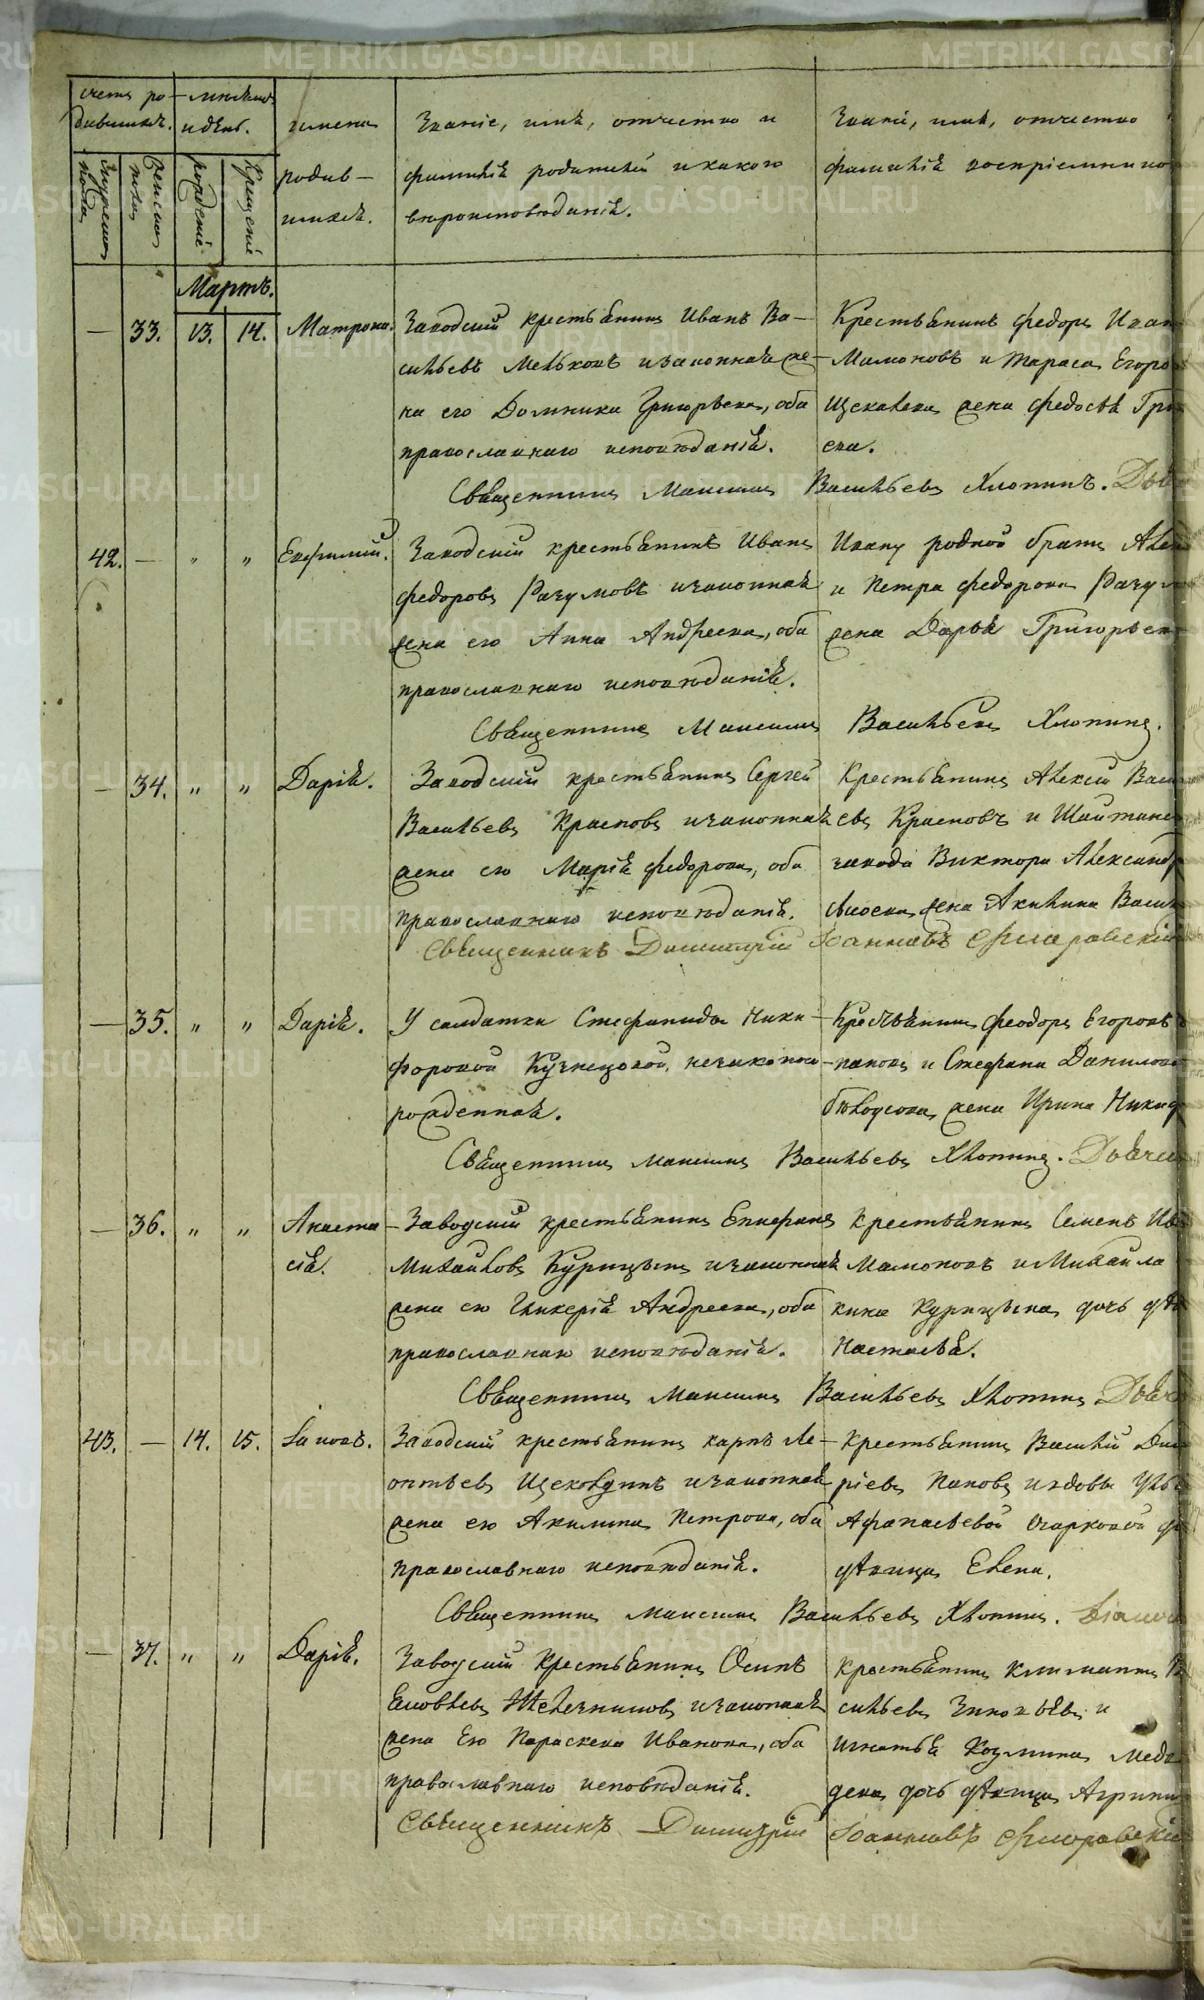 счетъ ро-
дившихся.
мѣсяцъ
и день.
имена
родив-
шихся.
Званіе, имя, отчество и
фамилія родителей и какого
вѣроисповѣданія.
Званіе, имя, отчество
фамилія воспріемниковъ
мужеска
пола
женска
пола
рожденіе
крещеніе
Мартъ.
— 33. 13. 14. Матрона.
Заводскій крестьянинъ Иванъ Ва-
сильевъ Мельковъ и законная же-
на его Домника Григорьева, оба
православнаго исповѣданія.
Крестьянинъ Федоръ Иван
Мамоновъ и Тараса Егоро
жена Федосья Гри
ева.
Священникъ Максимъ Васильевъ Хлопинъ.
42. — " " Евфимій.
Заводскій крестьянинъ Иванъ
Федоровъ Разумовъ и законная
жена его Анна Андреева, оба
православнаго исповѣданія.
Ивану родной братъ Алек
и Петра Федорова Разум
жена Дарья Григорьев
Священникъ Максимъ Васильевъ Хлопинъ.
— 34. " " Дарія.
Заводскій крестьянинъ Сергей
Васильевъ Красновъ и законная
жена его Марія Федорова, оба
православнаго исповѣданія.
Крестьянинъ Алексій Васил
евъ Красновъ и Шайтанс
завода Виктора Александр
жена Акилина Васил
Священникъ Димитрій Іоанновъ Флоровскій
— 35. " " Дарія.
У солдатки Стефаниды Ники-
форовой Кузнецовой, незаконно-
рожденная.
Крестьянинъ Феодоръ Егоровъ
пановъ и Стефана Данилова
Бѣлоусова жена Ирина Никиф
Священникъ Максимъ Васильевъ Хлопинъ.
— 36. " " Анаста-
сія.
Заводскій крестьянинъ Епифанъ
Михайловъ Курицынъ и законная
жена его Гликерія Андреева, оба
православнаго исповѣданія.
Крестьянинъ Семенъ Ив
Мамоновъ и Михаила
кина Курицына дочь дѣв
Настасья.
Священникъ Максимъ Васильевъ Хлопинъ
43. — 14. 15. Іаковъ.
Заводскій крестьянинъ Карпъ Ле-
онтьевъ Щеколдинъ и законная
жена его Акилина Петрова, оба
православнаго исповѣданія.
Крестьянинъ Василій Дими
ріевъ Пановъ и вдовы Уль
Афанасьевой Огарковой до
дѣвица Елена.
Священникъ Максимъ Васильевъ Хлопинъ.
— 37. " " Дарія.
Заводскій крестьянинъ Осипъ
Яковлевъ Желѣзниковъ и законная
жена его Параскева Иванова, оба
православнаго исповѣданія.
Крестьянинъ Климантъ В
сильевъ Зиновьевъ и
Игнатья Козмина Медв
дева дочь дѣвица Агрипи
Священникъ Димитрій Іоанновъ Флоровскій
METRIKI.GASO-URAL.RU